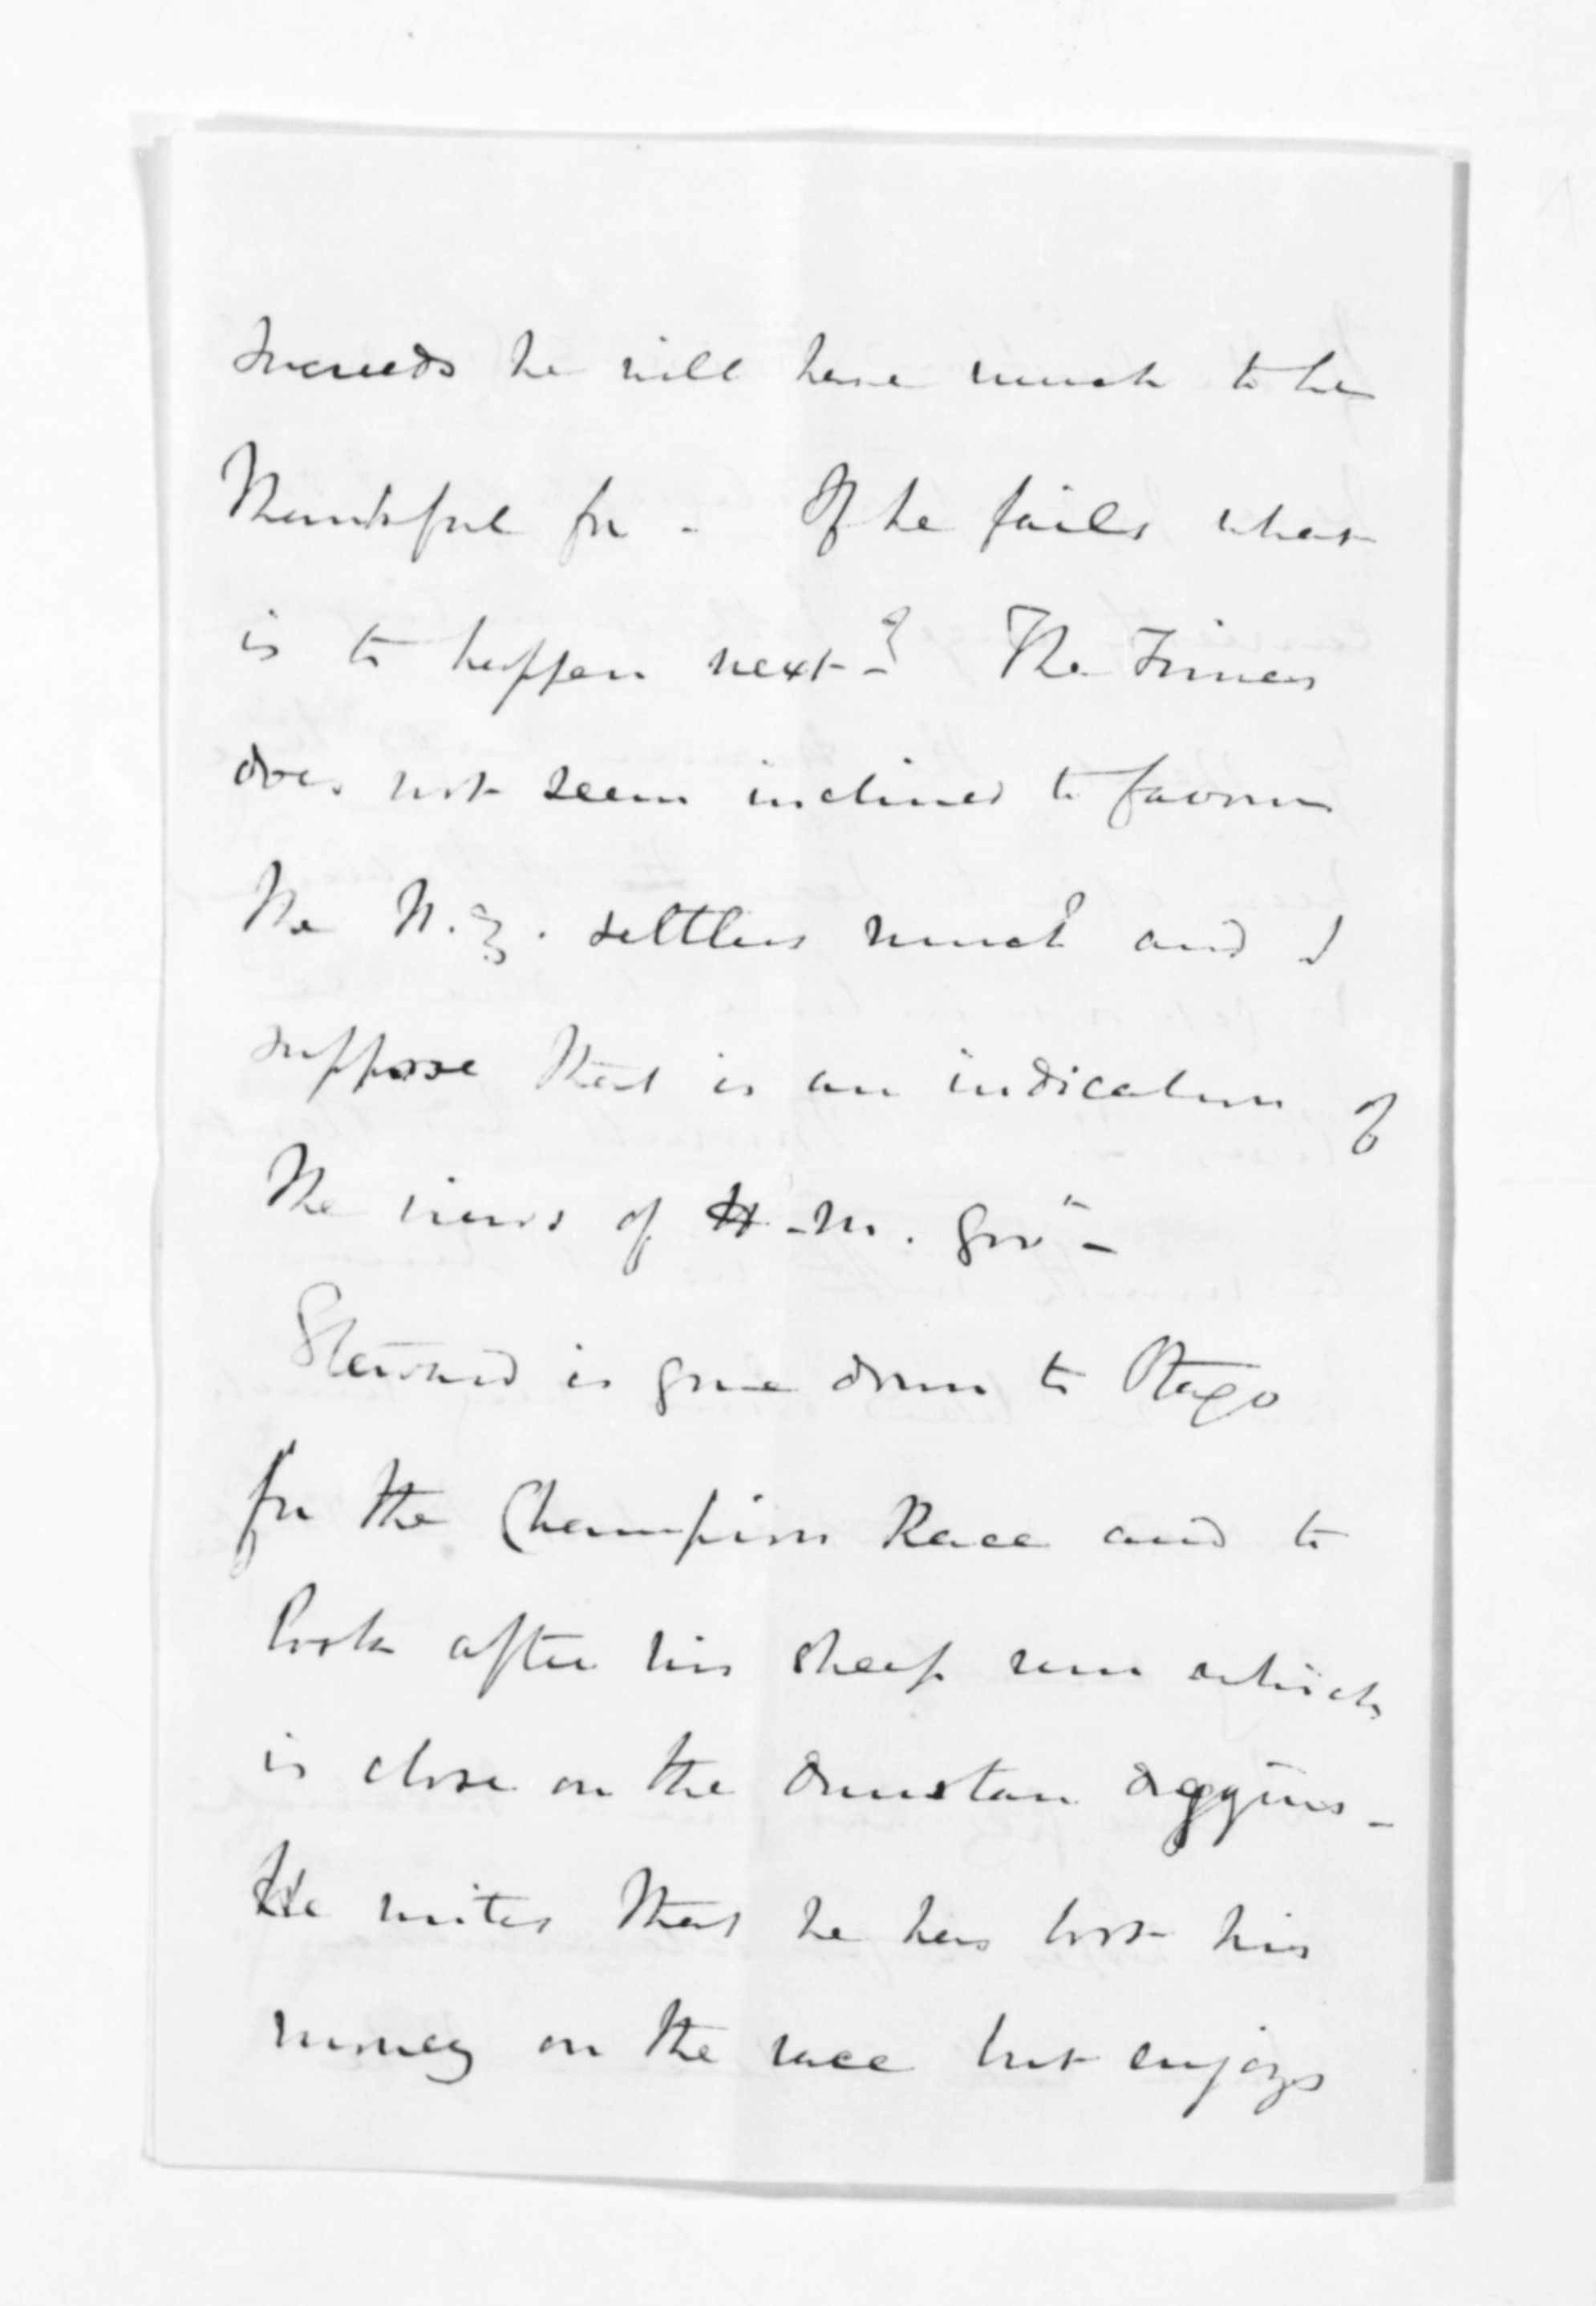 succeeds he will have much to be
thankful for - If he fails what
is to happen next - ? The Times
does not seem inclined to favour
the N.Z. settlers much and I
suppose that is an indication of
the views of H.M. Govt -
Steward is gone down to Otago
for the Champion Race and to
look after his sheep run which
is close on the Dunstan diggins -
He writes that he has lost his
money on the race but enjoys